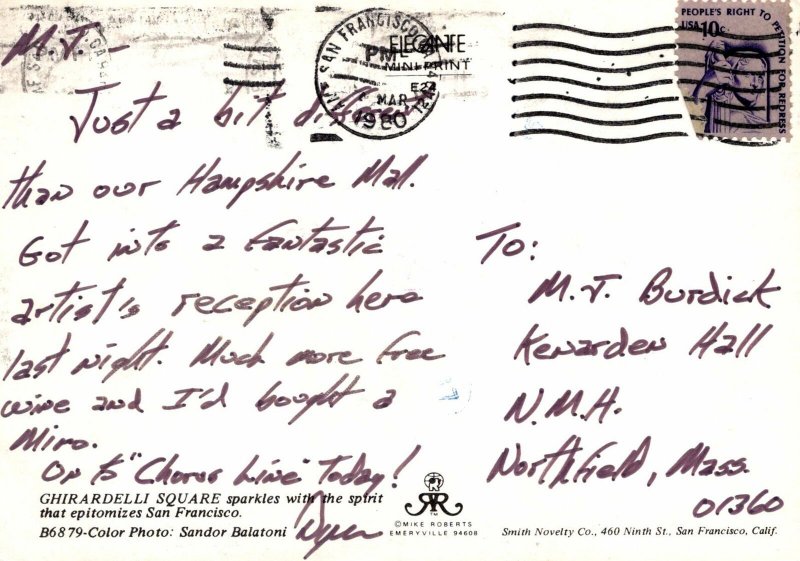 M.J. -
Just a bit different
than our Hampshire Mall.
Got into a fantastic
artist's reception here
last night. Much more free
wine and I'd bought a
Miro.
On to "Chorus Line" Today!
To:
M.J. Burdick
Kenarden Hall
N.M.H.
Northfield, Mass.
01360
SAN FRANCISCO
PM
MAR
1980
ELEGANTE
MINI-PRINT
PEOPLE'S RIGHT TO PETITION FOR REDRESS
USA 10c
GHIRARDELLI SQUARE sparkles with the spirit
that epitomizes San Francisco.
B6879-Color Photo: Sandor Balatoni
©MIKE ROBERTS
EMERYVILLE 94608
Smith Novelty Co., 460 Ninth St., San Francisco, Calif.